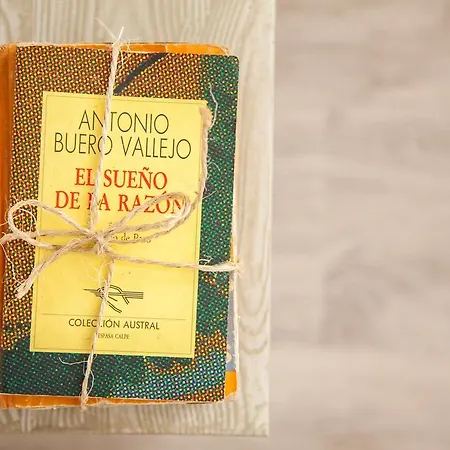 ANTONIO
BUERO VALLEJO
EL SUEÑO
DE LA RAZÓN
COLECCIÓN AUSTRAL
ESPASA CALPE